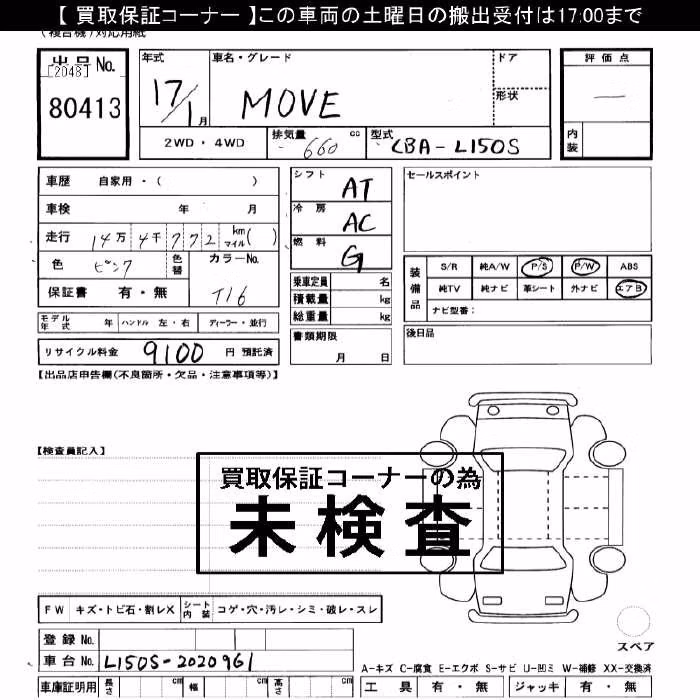 【 買取保証コーナー 】この車両の土曜日の搬出受付は17:00まで
(複合機)対応用紙
出品No.
[2048]
80413
年式 17/1月
車名・グレード MOVE
ドア
形状
評価点 —
内装
2WD・4WD
排気量 660 cc
型式 CBA-L150S
車歴 自家用・( )
車検 年 月
走行 14万 4千 7 7 2 km マイル( )
色 ピンク 色替
カラーNo. T16
保証書 有・無
シフト AT
冷房 AC
燃料 G
乗車定員 名
積載量 kg
総重量 kg
セールスポイント
装備品
S/R 純A/W P/S P/W ABS
純TV 純ナビ 革シート 外ナビ エアB
ナビ型番:
モデル年式 年 ハンドル 左・右 ディーラー・並行
書類期限 月 日
後日品
リサイクル料金 9100 円 預託済
【出品店申告欄(不良箇所・欠品・注意事項等)】
【検査員記入】
買取保証コーナーの為
未検査
FW キズ・トビ石・割レX シート内装 コゲ・穴・汚レ・シミ・破レ・スレ
スペア
登録No.
車台No. L150S-2020961
A-キズ C-腐食 E-エクボ S-サビ U-凹ミ W-補修 XX-交換済
車庫証明用 長さ cm 幅 cm 高さ cm
工具 有・無 ジャッキ 有・無